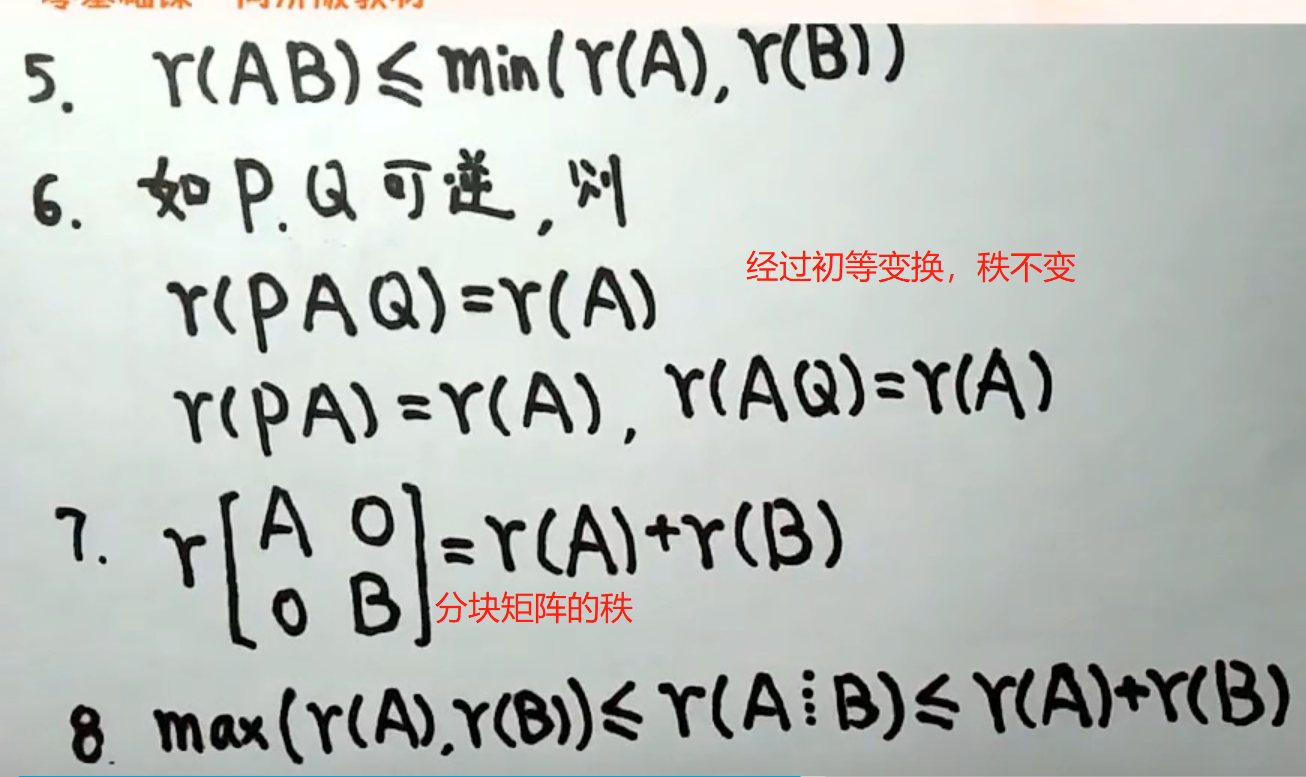 5. r(AB)≤min(r(A),r(B))
6. 如P.Q可逆,则
r(PAQ)=r(A)
经过初等变换，秩不变
r(PA)=r(A), r(AQ)=r(A)
7. r[A 0
0 B]=r(A)+r(B)
分块矩阵的秩
8. max(r(A),r(B))≤r(A⋮B)≤r(A)+r(B)